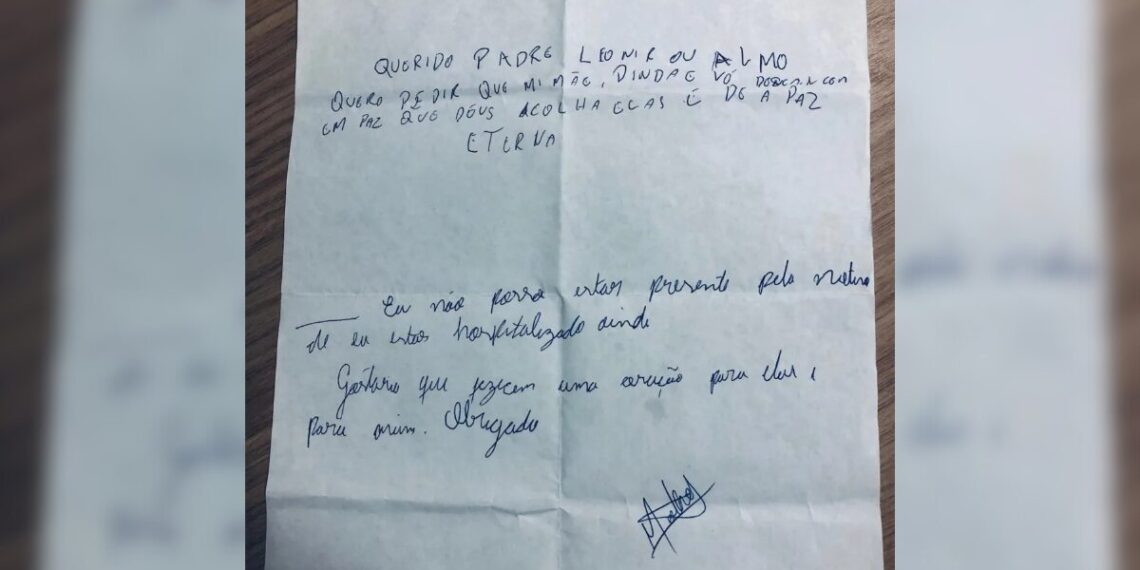 QUERIDO PADRE LEONIR OU ALMO
QUERO PEDIR QUE MI MÃE, DINDA E VÓ DESCANCEM
EM PAZ QUE DEUS ACOLHA ELAS É DE A PAZ
ETERNA
Eu não posso estar presente pelo
de eu estar hospitalizado ainda
Gostaria que fizecem uma oração para elas e
para mim. Obrigado